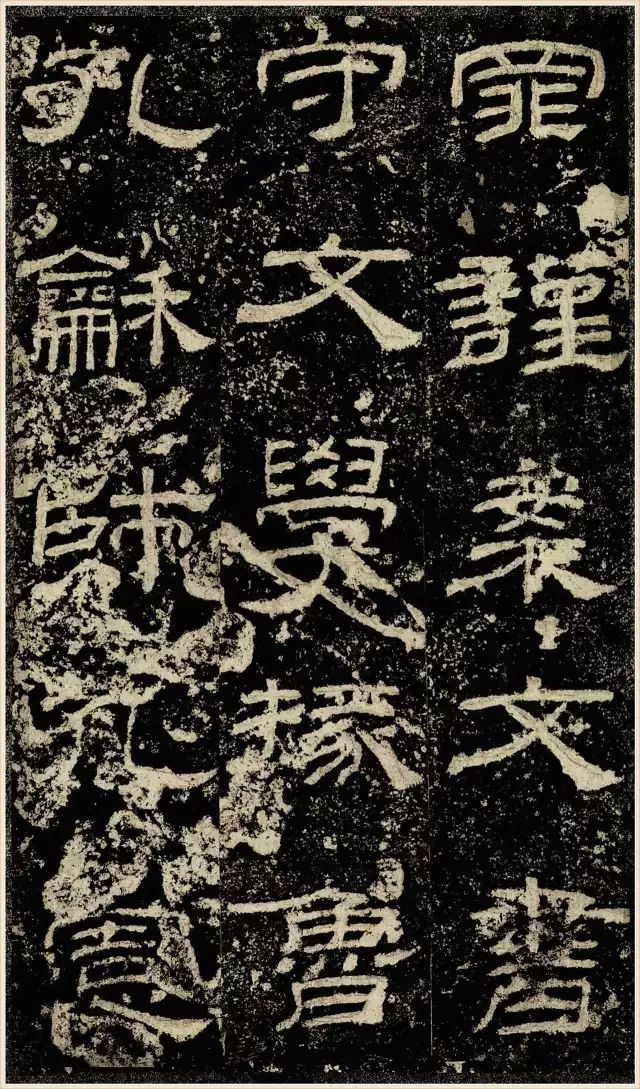 罪謹案文書
守文學掾魯
孔龢師孔憲